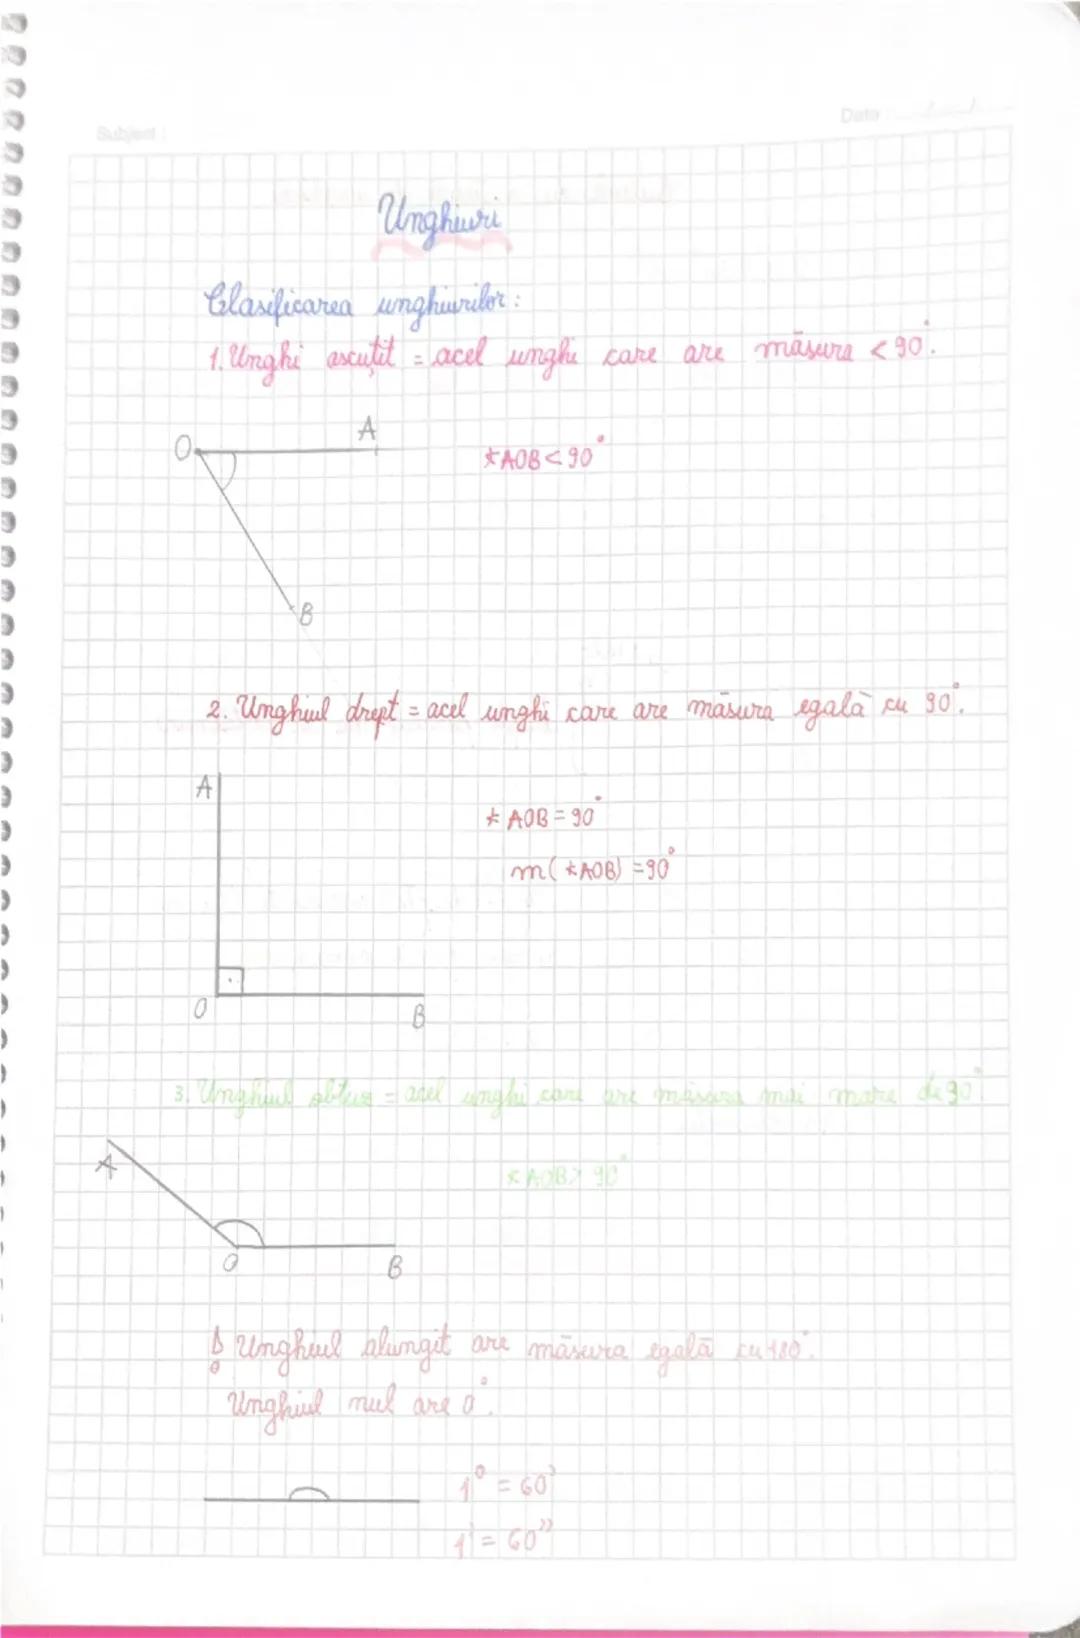 Subject :
Data :
Unghiuri
Clasificarea unghiurilor :
1. Unghi ascuțit = acel unghi care are măsura < 90°.
O
A
∢AOB < 90°
B
2. Unghiul drept = acel unghi care are măsura egală cu 90°.
A
∢ AOB = 90°
m( ∢AOB) = 90°
O
B
3. Unghiul obtuz = acel unghi care are măsura mai mare de 90°
A
∢ AOB > 90°
O
B
! Unghiul alungit are măsura egală cu 180°.
Unghiul nul are 0°.
1° = 60'
1' = 60''